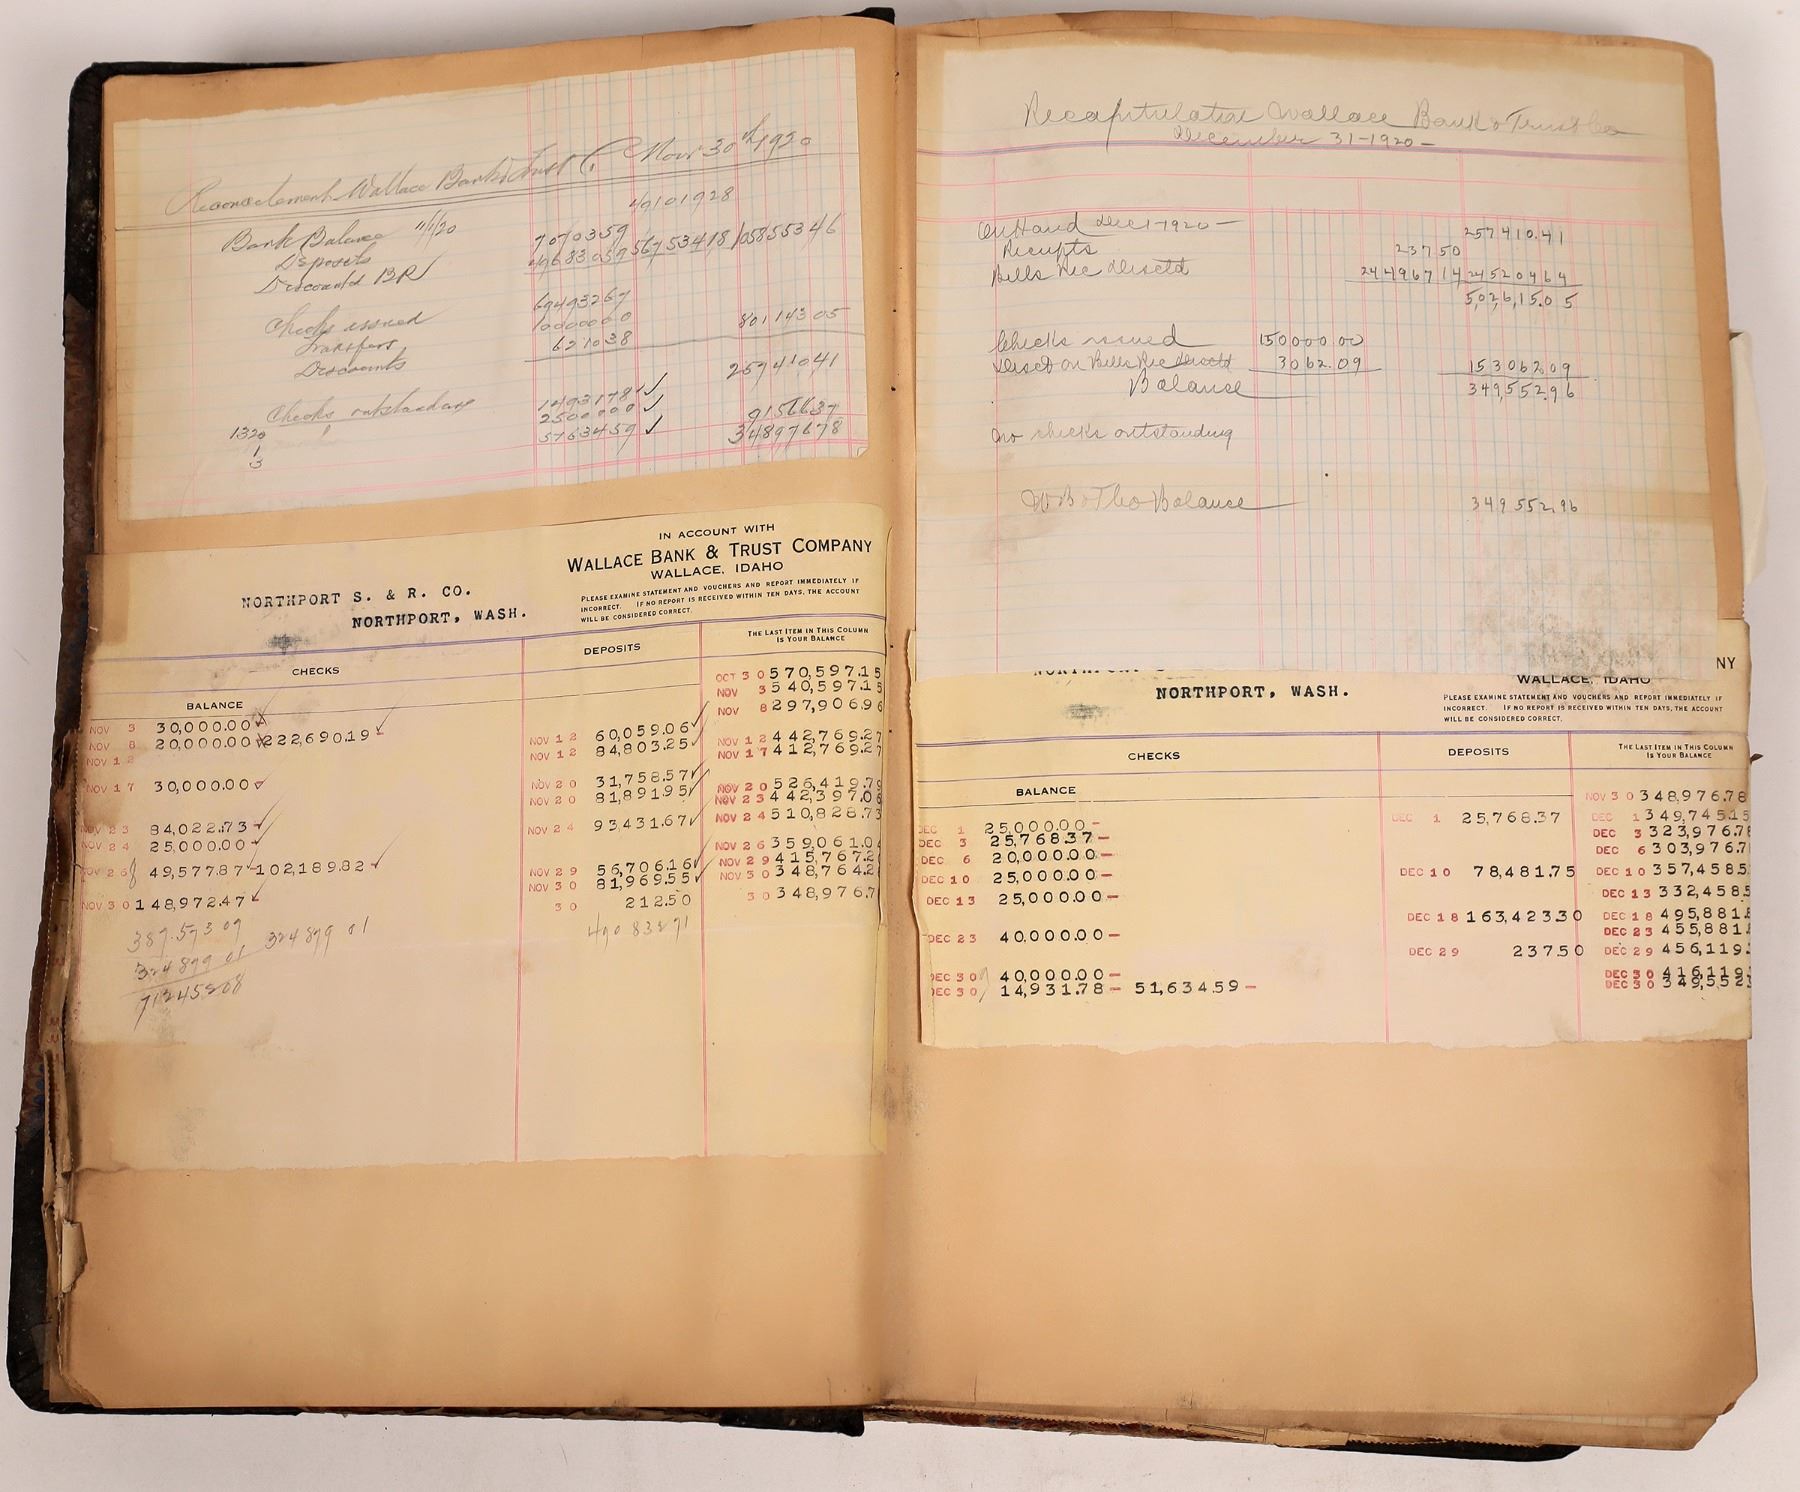 Reconcilement Wallace Bank & Trust Co Nov 30th 1920
49101928
Bank Balance 11/1/20
Deposits 7070359
Discounted BR 49683059 56753418 105855346
Checks issued 69493267
Transfers 1000000 80114305
Discounts 621038
25741041
Checks outstanding 1493178 ✓
1320 2500000 ✓ 9156637
1 5763459 ✓ 34897678
3
IN ACCOUNT WITH
WALLACE BANK & TRUST COMPANY
WALLACE, IDAHO
NORTHPORT S. & R. CO.
NORTHPORT, WASH.
PLEASE EXAMINE STATEMENT AND VOUCHERS AND REPORT IMMEDIATELY IF
INCORRECT. IF NO REPORT IS RECEIVED WITHIN TEN DAYS, THE ACCOUNT
WILL BE CONSIDERED CORRECT.
CHECKS DEPOSITS THE LAST ITEM IN THIS COLUMN
IS YOUR BALANCE
BALANCE
OCT 30 570,597.15
NOV 3 30,000.00 ✓ NOV 3 540,597.15
NOV 8 20,000.00 ✓ 222,690.19 ✓ NOV 8 297,906.96
NOV 12 NOV 12 60,059.06 ✓
NOV 12 84,803.25 ✓ NOV 12 442,769.27
NOV 17 30,000.00 ✓ NOV 17 412,769.27
NOV 20 31,758.57 ✓
NOV 20 81,891.95 ✓ NOV 20 526,419.79
NOV 23 84,022.73 ✓ NOV 23 442,397.06
NOV 24 25,000.00 ✓ NOV 24 93,431.67 ✓ NOV 24 510,828.73
NOV 26 49,577.87 ✓ 102,189.82 ✓ NOV 26 359,061.04
NOV 29 56,706.16 ✓ NOV 29 415,767.2
NOV 30 148,972.47 ✓ NOV 30 81,969.55 ✓ NOV 30 348,764.2
30 212.50 30 348,976.7
387.573 09 324899 01 490 83271
324899 01
71245208
Recapitulation Wallace Bank & Trust Co
December 31-1920-
On Hand Dec 1 1920- 257410.41
Receipts 237 50
Bills Rec Disctd 24496714 24520464
5,026,15.05
Checks issued 150000 00
Disct on Bills Rec Disctd 3062.09 153062 09
Balance 349,552.96
No checks outstanding
W B & T Co Balance 349 552.96
NY
WALLACE, IDAHO
NORTHPORT, WASH.
PLEASE EXAMINE STATEMENT AND VOUCHERS AND REPORT IMMEDIATELY IF
INCORRECT. IF NO REPORT IS RECEIVED WITHIN TEN DAYS, THE ACCOUNT
WILL BE CONSIDERED CORRECT.
CHECKS DEPOSITS THE LAST ITEM IN THIS COLUMN
IS YOUR BALANCE
BALANCE
NOV 30 348,976.78
DEC 1 25,000.00 - DEC 1 25,768.37 DEC 1 349,745.15
DEC 3 25,768.37 - DEC 3 323,976.78
DEC 6 20,000.00 - DEC 6 303,976.7
DEC 10 25,000.00 - DEC 10 78,481.75 DEC 10 357,458.5
DEC 13 25,000.00 - DEC 13 332,458.5
DEC 18 163,423.30 DEC 18 495,881.8
DEC 23 40,000.00 - DEC 23 455,881.8
DEC 29 237.50 DEC 29 456,119.
DEC 30 40,000.00 - DEC 30 416,119.
DEC 30 14,931.78 - 51,634.59 - DEC 30 349,552